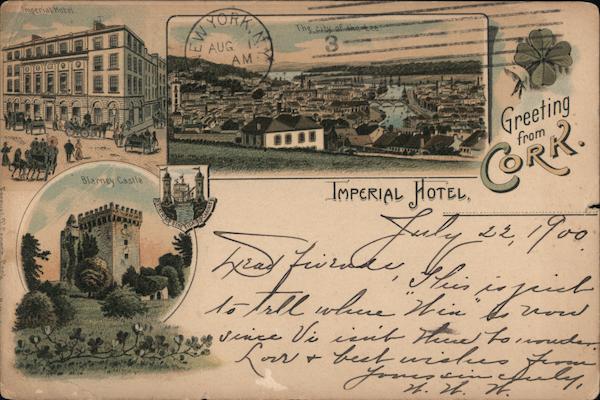 Imperial Hotel
The City of the Lee
NEW YORK, N.Y.
AUG 1
AM
3
Greeting
from
CORK.
Blarney Castle
IMPERIAL HOTEL,
July 22, 1900
Dear Friends, This is just
to tell where "Win" is now
since Vi isn't there to wonder.
Love & best wishes from
Yours sincerely,
W. W. W.